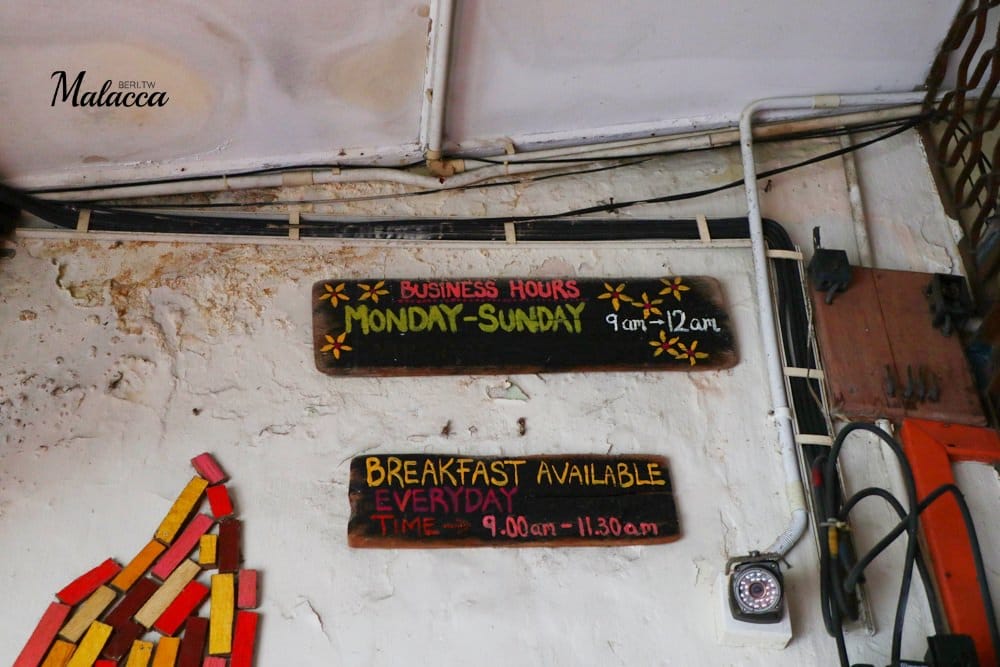 BERI.TW
Malacca
BUSINESS HOURS
MONDAY-SUNDAY 9am-12am
BREAKFAST AVAILABLE
EVERYDAY
TIME → 9.00am-11.30am